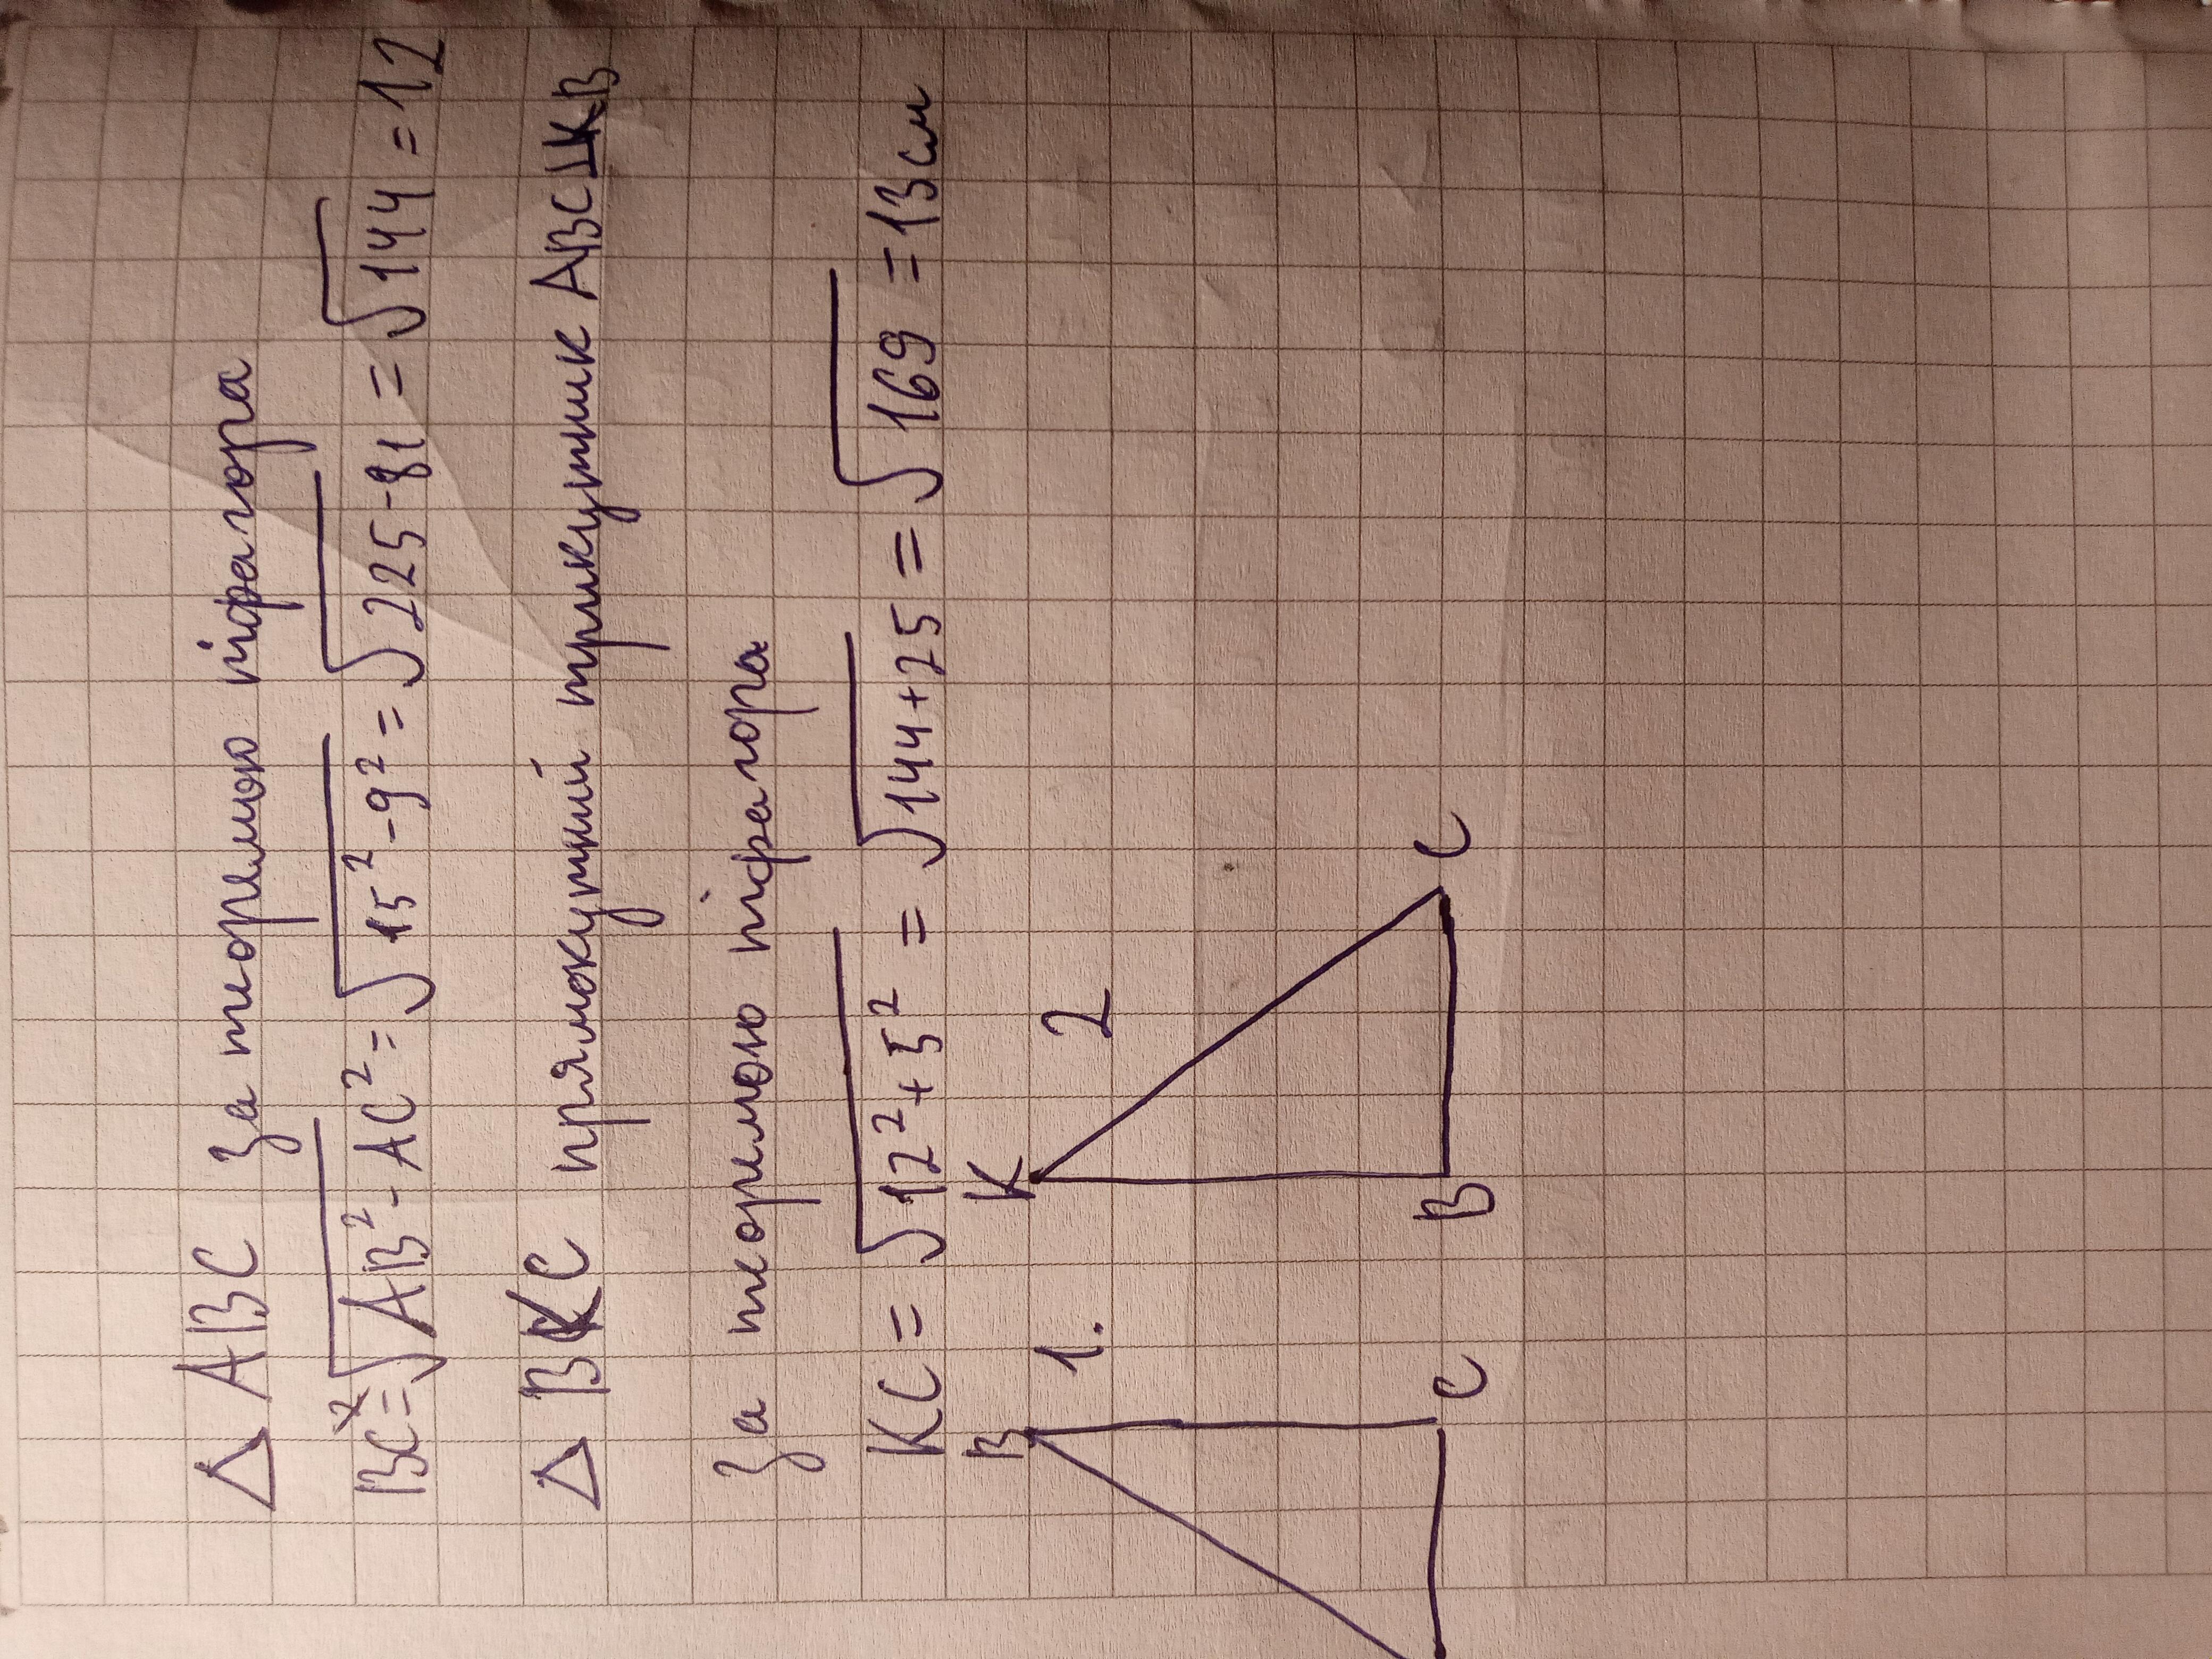 △ ABC За теоремою піфагора
BC = √AB² - AC² = √15² - 9² = √225 - 81 = √144 = 12
△ BKC прямокутний трикутник ABC⊥KB
За теоремою піфагора
KC = √12² + 5² = √144 + 25 = √169 = 13см
B 1. K 2
C B C